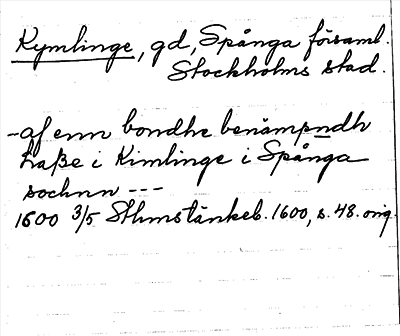 Kymlinge, gd, Spånga församl.
Stockholms stad.
- af enn bondhe benämpndh
haße i Kimlinge i Spånga
sochnn ---
1600 3/5 Sthmstänkeb. 1600, s. 48. orig.